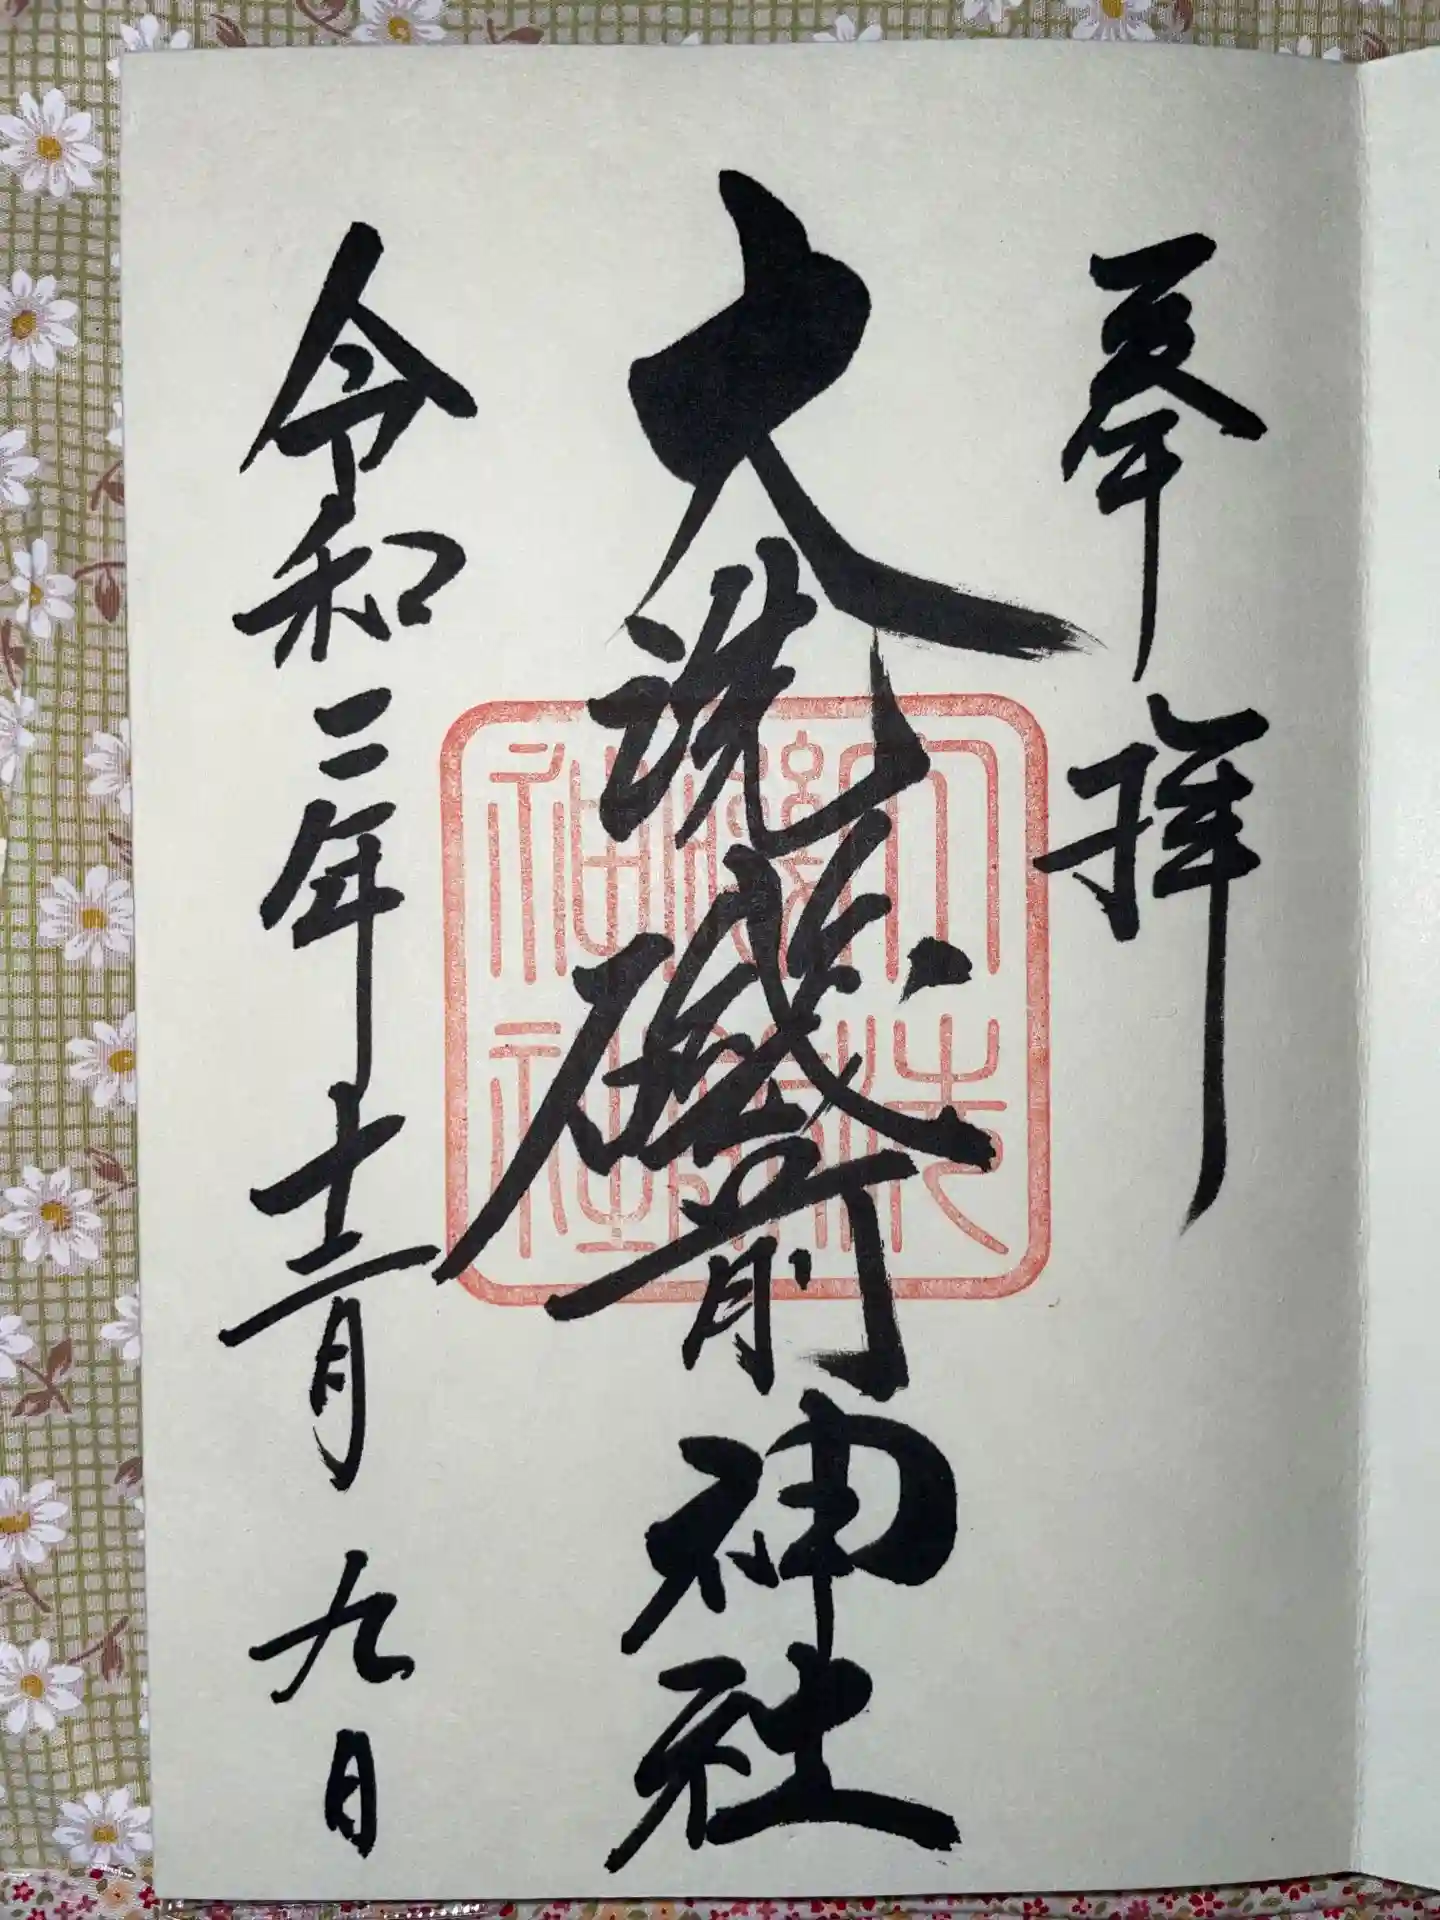 奉拝
大洗磯前神社
大洗磯前神社
令和二年十二月九日